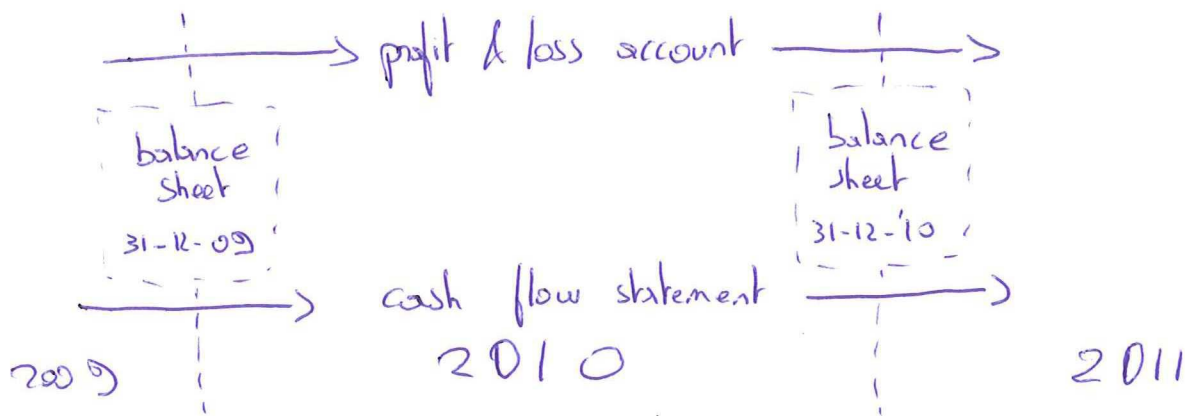 profit & loss account
balance
sheet
31-12-09
balance
sheet
31-12-'10
cash flow statement
2009
2010
2011